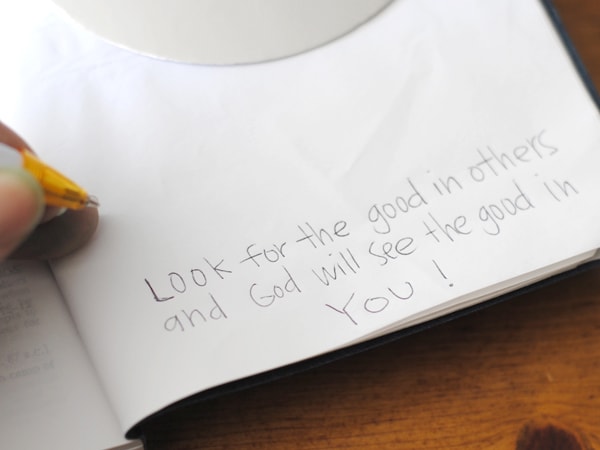 Look for the good in others
and God will see the good in
You!